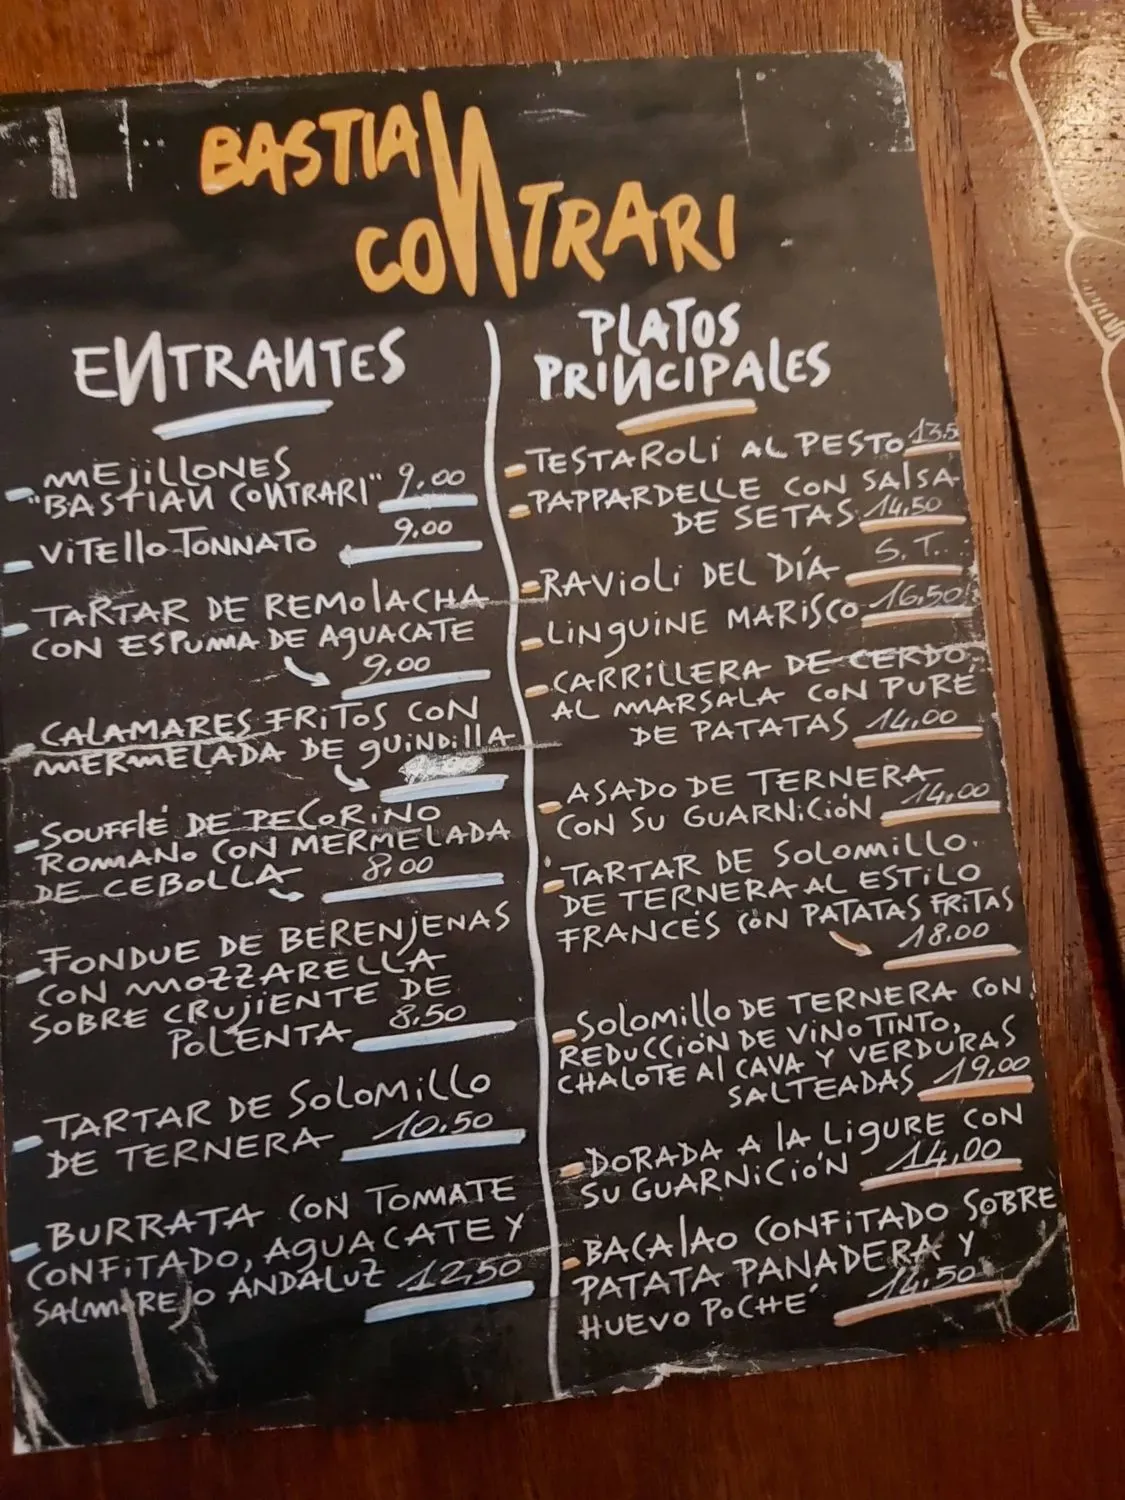 BASTIAN
CONTRARI
ENTRANTES
- MEJILLONES
"BASTIAN CONTRARI" 9.00
- VITELLO TONNATO 9.00
- TARTAR DE REMOLACHA
CON ESPUMA DE AGUACATE
9.00
- CALAMARES FRITOS CON
MERMELADA DE GUINDILLA
- SOUFFLÉ DE PECORINO
ROMANO CON MERMELADA
DE CEBOLLA 8,00
- FONDUE DE BERENJENAS
CON MOZZARELLA
SOBRE CRUJIENTE DE
POLENTA 8.50
- TARTAR DE SOLOMILLO
DE TERNERA 10.50
- BURRATA CON TOMATE
CONFITADO, AGUACATE Y
SALMOREJO ANDALUZ 12,50
PLATOS
PRINCIPALES
- TESTAROLI AL PESTO 13.5
- PAPPARDELLE CON SALSA
DE SETAS 14,50
- RAVIOLI DEL DÍA S.T.
- LINGUINE MARISCO 16,50
- CARRILLERA DE CERDO
AL MARSALA CON PURÉ
DE PATATAS 14,00
- ASADO DE TERNERA
CON SU GUARNICIÓN 14,00
- TARTAR DE SOLOMILLO
DE TERNERA AL ESTILO
FRANCÉS CON PATATAS FRITAS
18.00
- SOLOMILLO DE TERNERA CON
REDUCCIÓN DE VINO TINTO,
CHALOTE AL CAVA Y VERDURAS
SALTEADAS 19,00
- DORADA A LA LIGURE CON
SU GUARNICIÓN 14,00
- BACALAO CONFITADO SOBRE
PATATA PANADERA Y
HUEVO POCHÉ 14,50